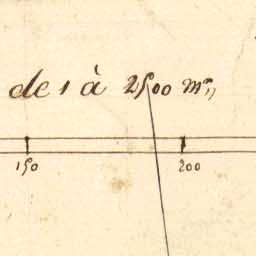 de 1 à 2500 m.
150 200